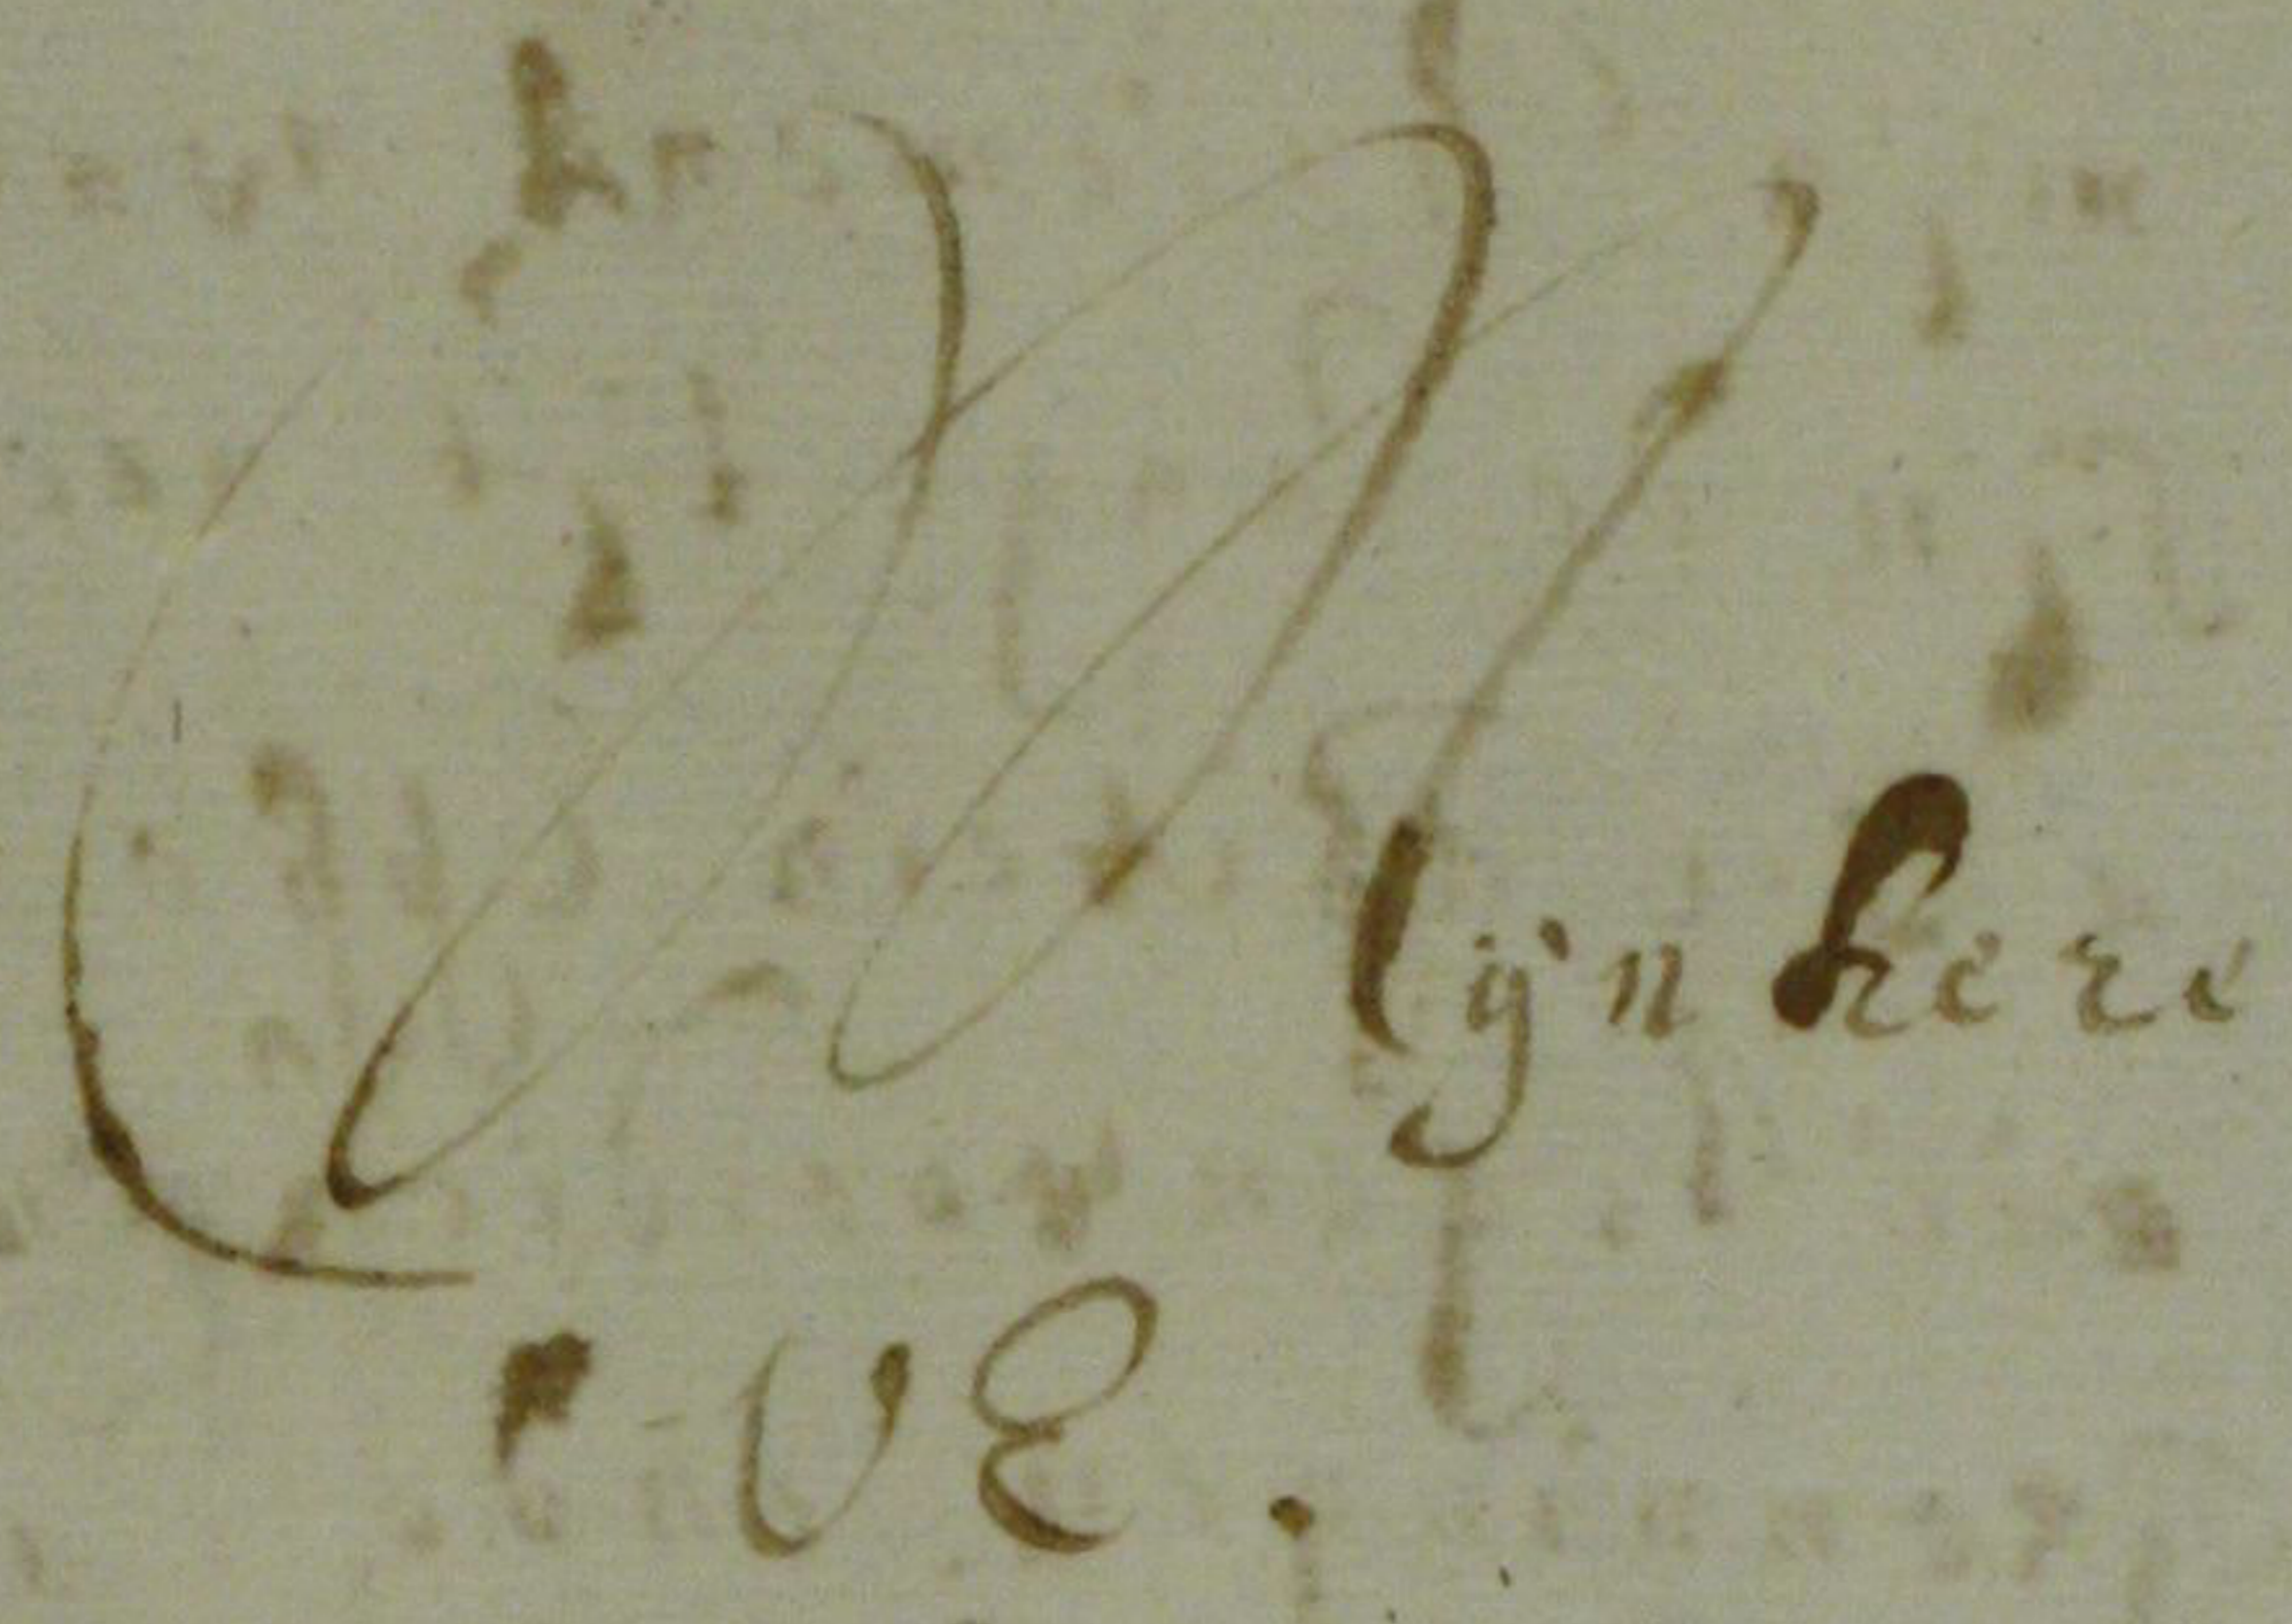 Mijn heere
UE.